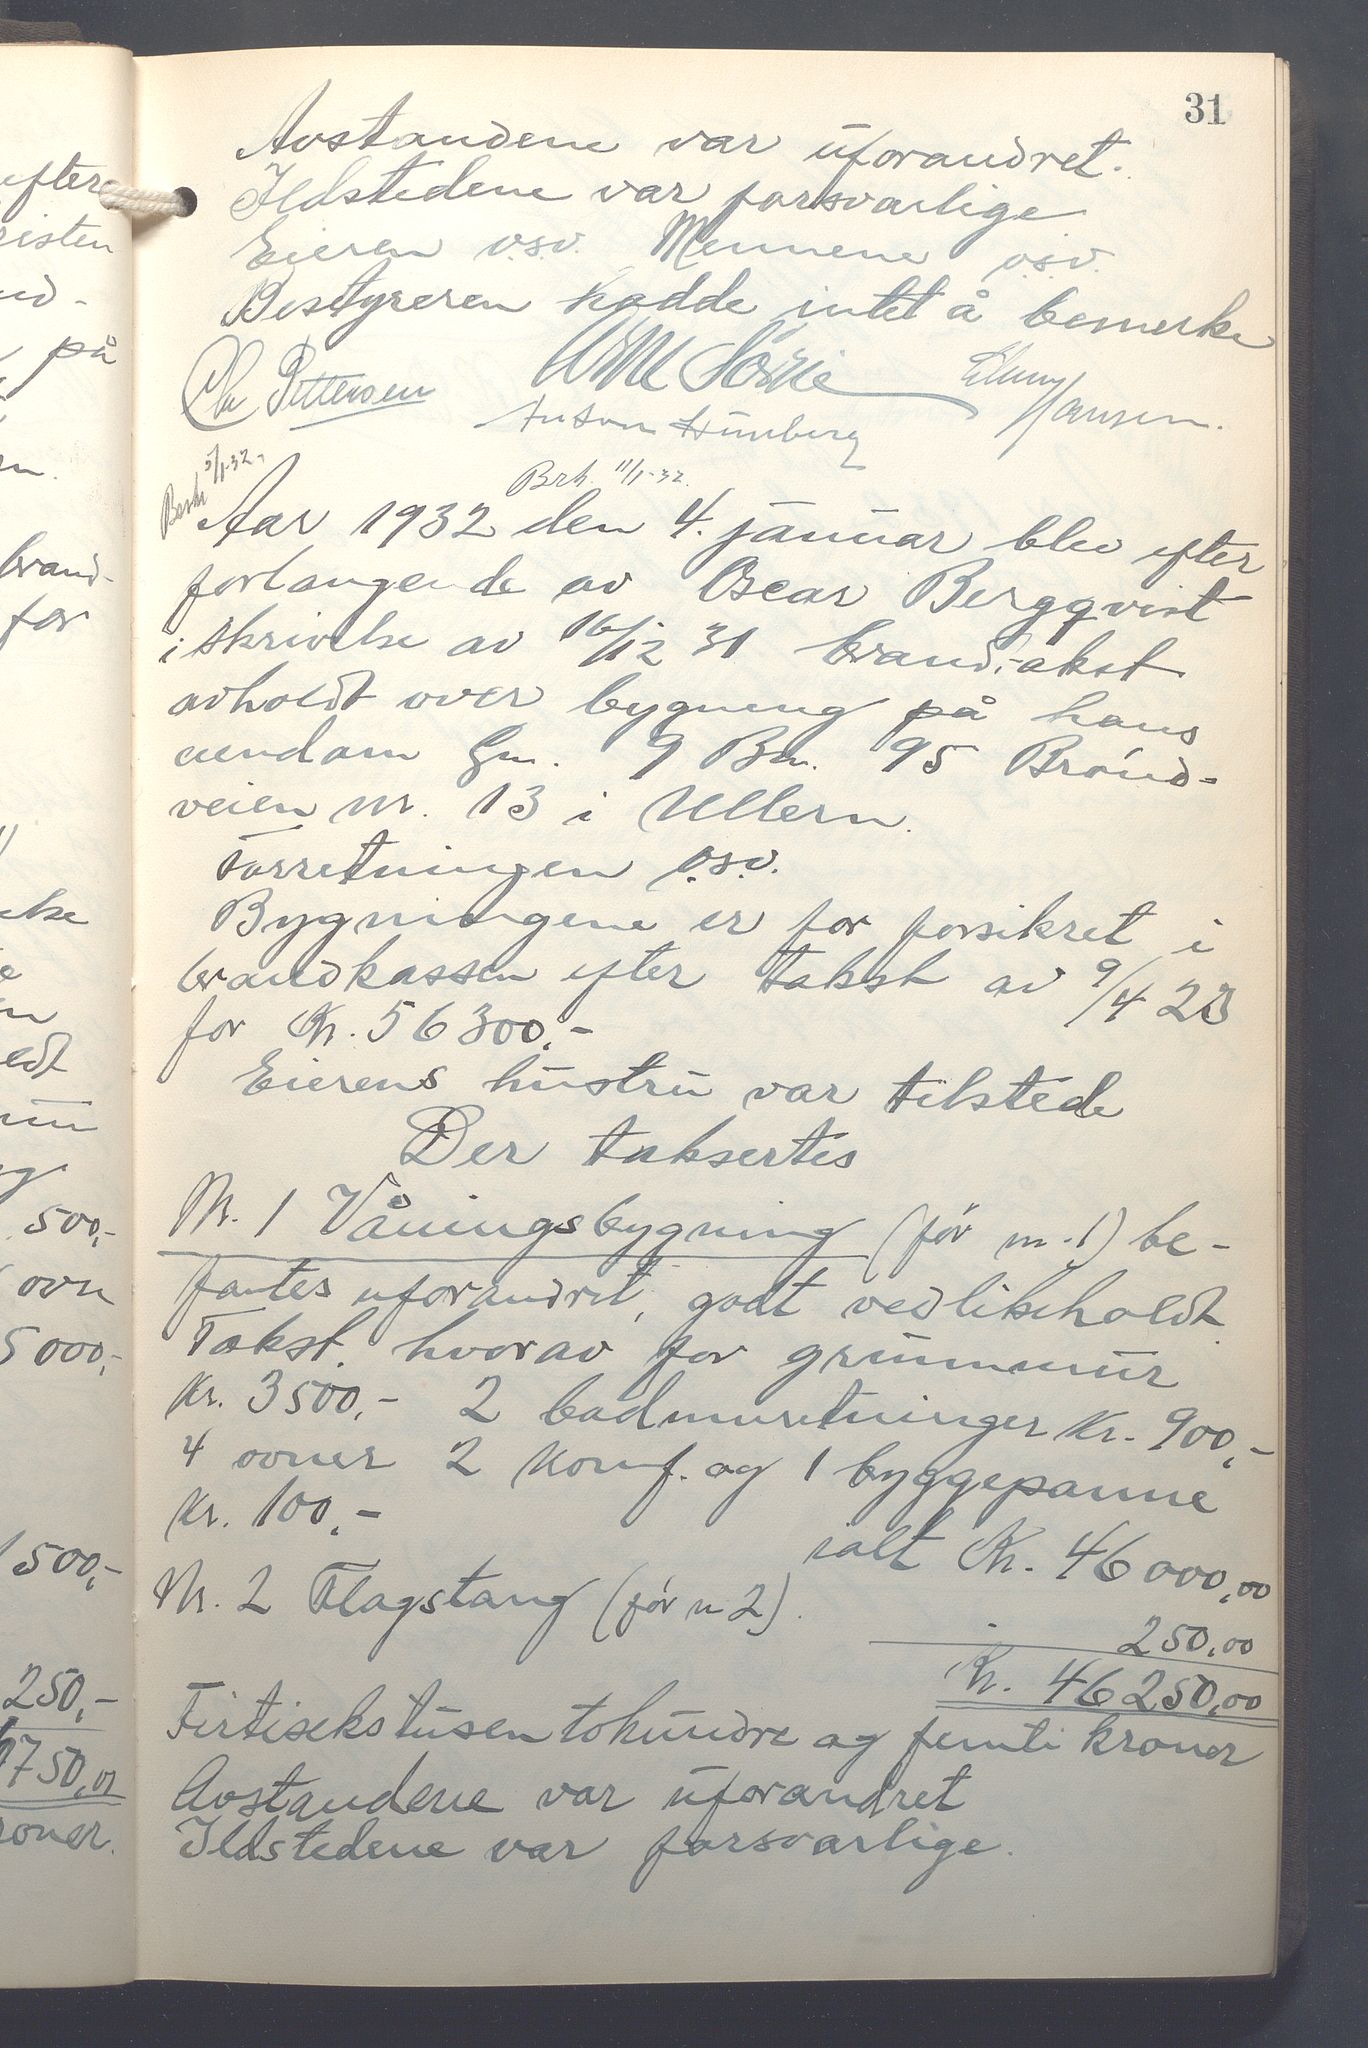 31
Avstandene var uforandret.
Ildstedene var forsvarlige
Eieren o.s.v. Mennene o.s.v.
Bestyreren hadde intet å bemerke
Chr Pettersen
Anton
Hansen.
5/1-32.
Brk. 11/1-32.
Aar 1932 den 4. januar blev efter
forlangende av Oscar Bergqvist
i skrivelse av 16/12 31 brandtakst
avholdt over bygning på hans
eiendom Gn. 9 Bn. 95 Brönd-
veien nr. 13 i Ullern.
Forretningen o.s.v.
Bygningene er för forsikret i
brandkassen efter takst av 9/4 23
for Kr. 56300,-
Eierens hustru var tilstede
Der taksertes
Nr. 1 Våningsbygning (för nr. 1) be-
fantes uforandret, godt vedlikeholdt.
Takst. hvorav for grunnmur
Kr. 3500,- 2 badinnretninger Kr. 900,-
4 ovner 2 komf. og 1 byggepanne
Kr. 100,-
ialt Kr. 46000,00
Nr. 2 Flagstang (för nr 2).
250,00
Kr. 46250,00
Firtiseks tusen tohundre og femti kroner
Avstandene var uforandret
Ildstedene var forsvarlige.
efter
på
brand-
for
500,-
ovn
5000,-
1500,-
250,-
750,00
kroner.